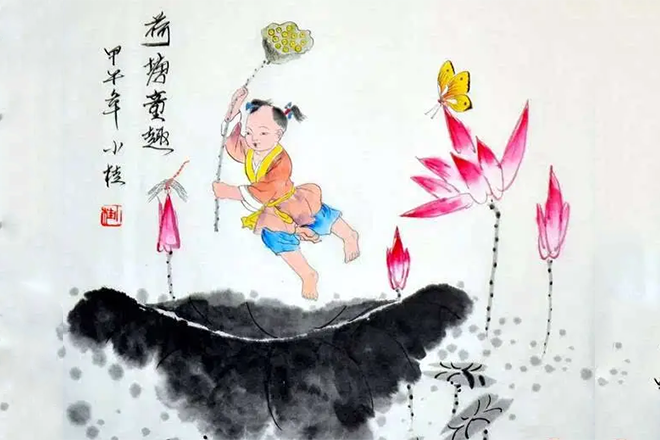 荷塘童趣
甲午年 小桂